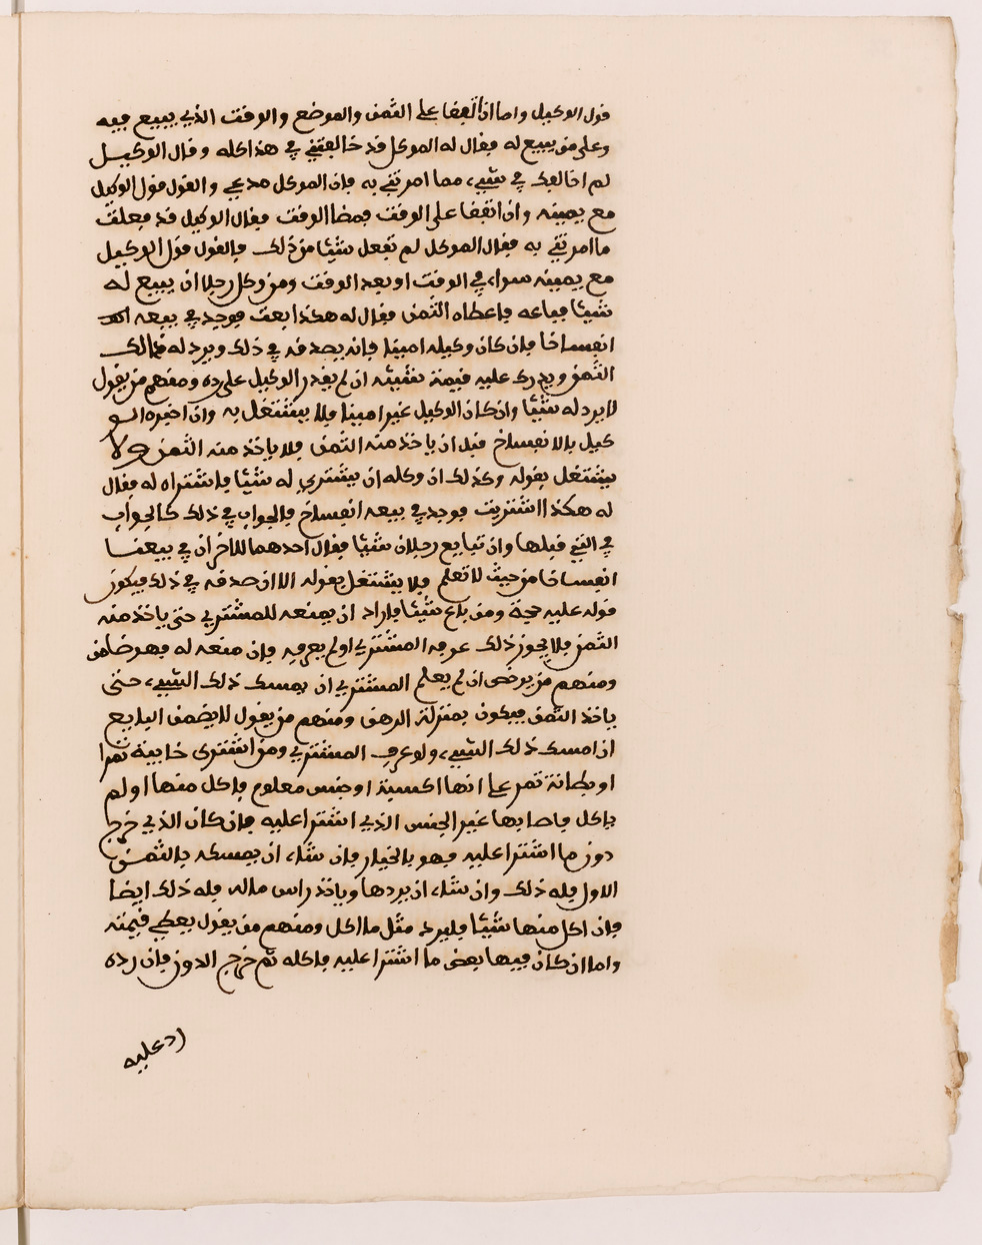 قول الوكيل واما ان اتفقا على الثمن والموضع والوقت الذي يبيع فيه
وعلى من يبيع له فقال له الموكل قد خالفتني في هذا كله وقال الوكيل
لم اخالفك في شيء مما امرتني به فان الموكل مدعي والقول قول الوكيل
مع يمينه وان اتفقا على الوقت فمضا الوقت فقال الوكيل قد فعلت
ما امرتني به فقال الموكل لم تفعل شيئا من ذلك فالقول قول الوكيل
مع يمينه سواء في الوقت او بعد الوقت ومن وكل رجلا ان يبيع له
شيئا فباعه فاعطاه الثمن فقال له هكذا بعت فوجد في بيعه
انفساخا فان كان وكيله امينا فانه يصدقه في ذلك ويرد له ذلك
الثمن ويدرك عليه قيمة شيئه ان لم يقدر الوكيل على رده ومنهم من يقول
لا يرد له شيئا وان كان الوكيل غير امينا فلا يشتغل به وان اخبره الو
كيل بالانفساخ قبل ان ياخذ منه الثمن فلا ياخذ منه الثمن ولا
يشتغل بقوله وكذلك ان وكله ان يشتري له شيئا فاشتراه له فقال
له هكذا اشتريت فوجد في بيعه انفساخ فالجواب في ذلك كالجواب
في التي قبلها وان تبايع رجلان شيئا فقال احدهما للاخر ان في بيعنا
انفساخا من حيث لا تعلم فلا يشتغل بقوله الا ان صدقه في ذلك فيكون
قوله عليه حجة ومن باع شيئا فاراد ان يمنعه للمشتري حتى ياخذ منه
الثمن فلا يجوز ذلك عرفه المشتري او لم يعرفه فان منعه له فهو ضامن
ومنهم من يرخص ان لم يعلم المشتري ان يمسك ذلك الشيء حتى
ياخذ الثمن فيكون بمنزلة الرهن ومنهم من يقول لا يضمن البايع
ان امسك ذلك الشيء ولو عرف المشتري ومن اشترى خابية تمرا
او بطانة تمر على انها اكسبة او جنس معلوم فاكل منها او لم
ياكل فاصابها غير الجنس الذي اشترا عليه فان كان الذي خرج
دون ما اشترا عليه فهو بالخيار فان شاء ان يمسكه بالثمن
الاول فله ذلك وان شاء ان يردها وياخذ راس ماله فله ذلك ايضا
فان اكل منها شيئا فليرد مثل ما اكل ومنهم من يقول يعطي قيمته
واما ان كان فيها بعض ما اشترا عليه فاكله ثم خرج الدون فان رده
رد عليه